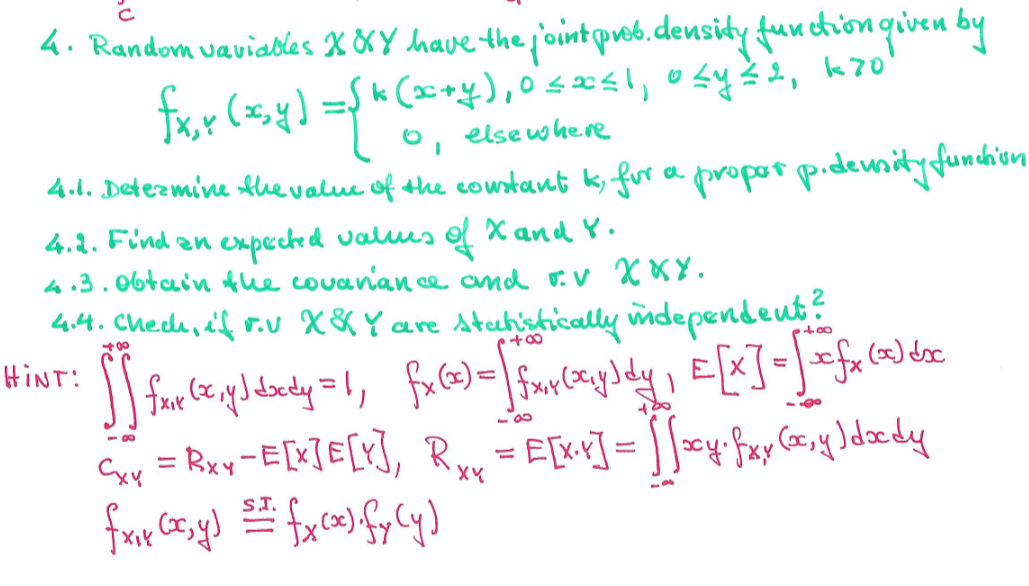 C
4. Random variables X & Y have the joint prob. density function given by
f_{X,Y}(x,y) = { k(x+y), 0 ≤ x ≤ 1, 0 ≤ y ≤ 2, k>0
0, elsewhere
4.1. Determine the value of the constant k, for a proper p. density function
4.2. Find an expected values of X and Y.
4.3. Obtain the covariance and r.v X & Y.
4.4. Check, if r.v X & Y are statistically independent?
HINT: ∬_{-∞}^{+∞} f_{X,Y}(x,y)dxdy = 1, f_X(x) = ∫_{-∞}^{+∞} f_{X,Y}(x,y)dy, E[X] = ∫_{-∞}^{+∞} x f_X(x)dx
C_{XY} = R_{XY} - E[X]E[Y], R_{XY} = E[X·Y] = ∬_{-∞}^{+∞} xy·f_{X,Y}(x,y)dxdy
f_{X,Y}(x,y) S.I. = f_X(x)·f_Y(y)